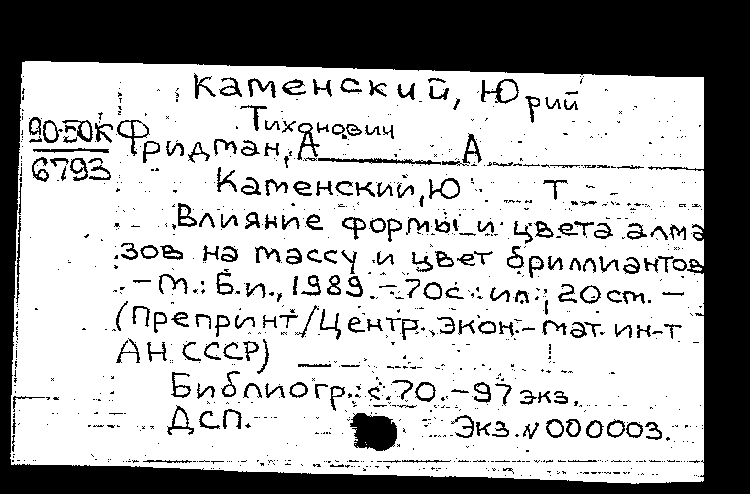 Каменский, Юрий
Тихонович
90-50К
6793
Фридман, А А
Каменский, Ю Т
Влияние формы и цвета алма
зов на массу и цвет бриллиантов
- М.: Б.и., 1989. - 70с.: ил.; 20 ст. -
(Препринт/Центр. экон.-мат. ин-т
АН СССР)
Библиогр.: с. 70. - 97 экз.
ДСП. Экз. N 000003.